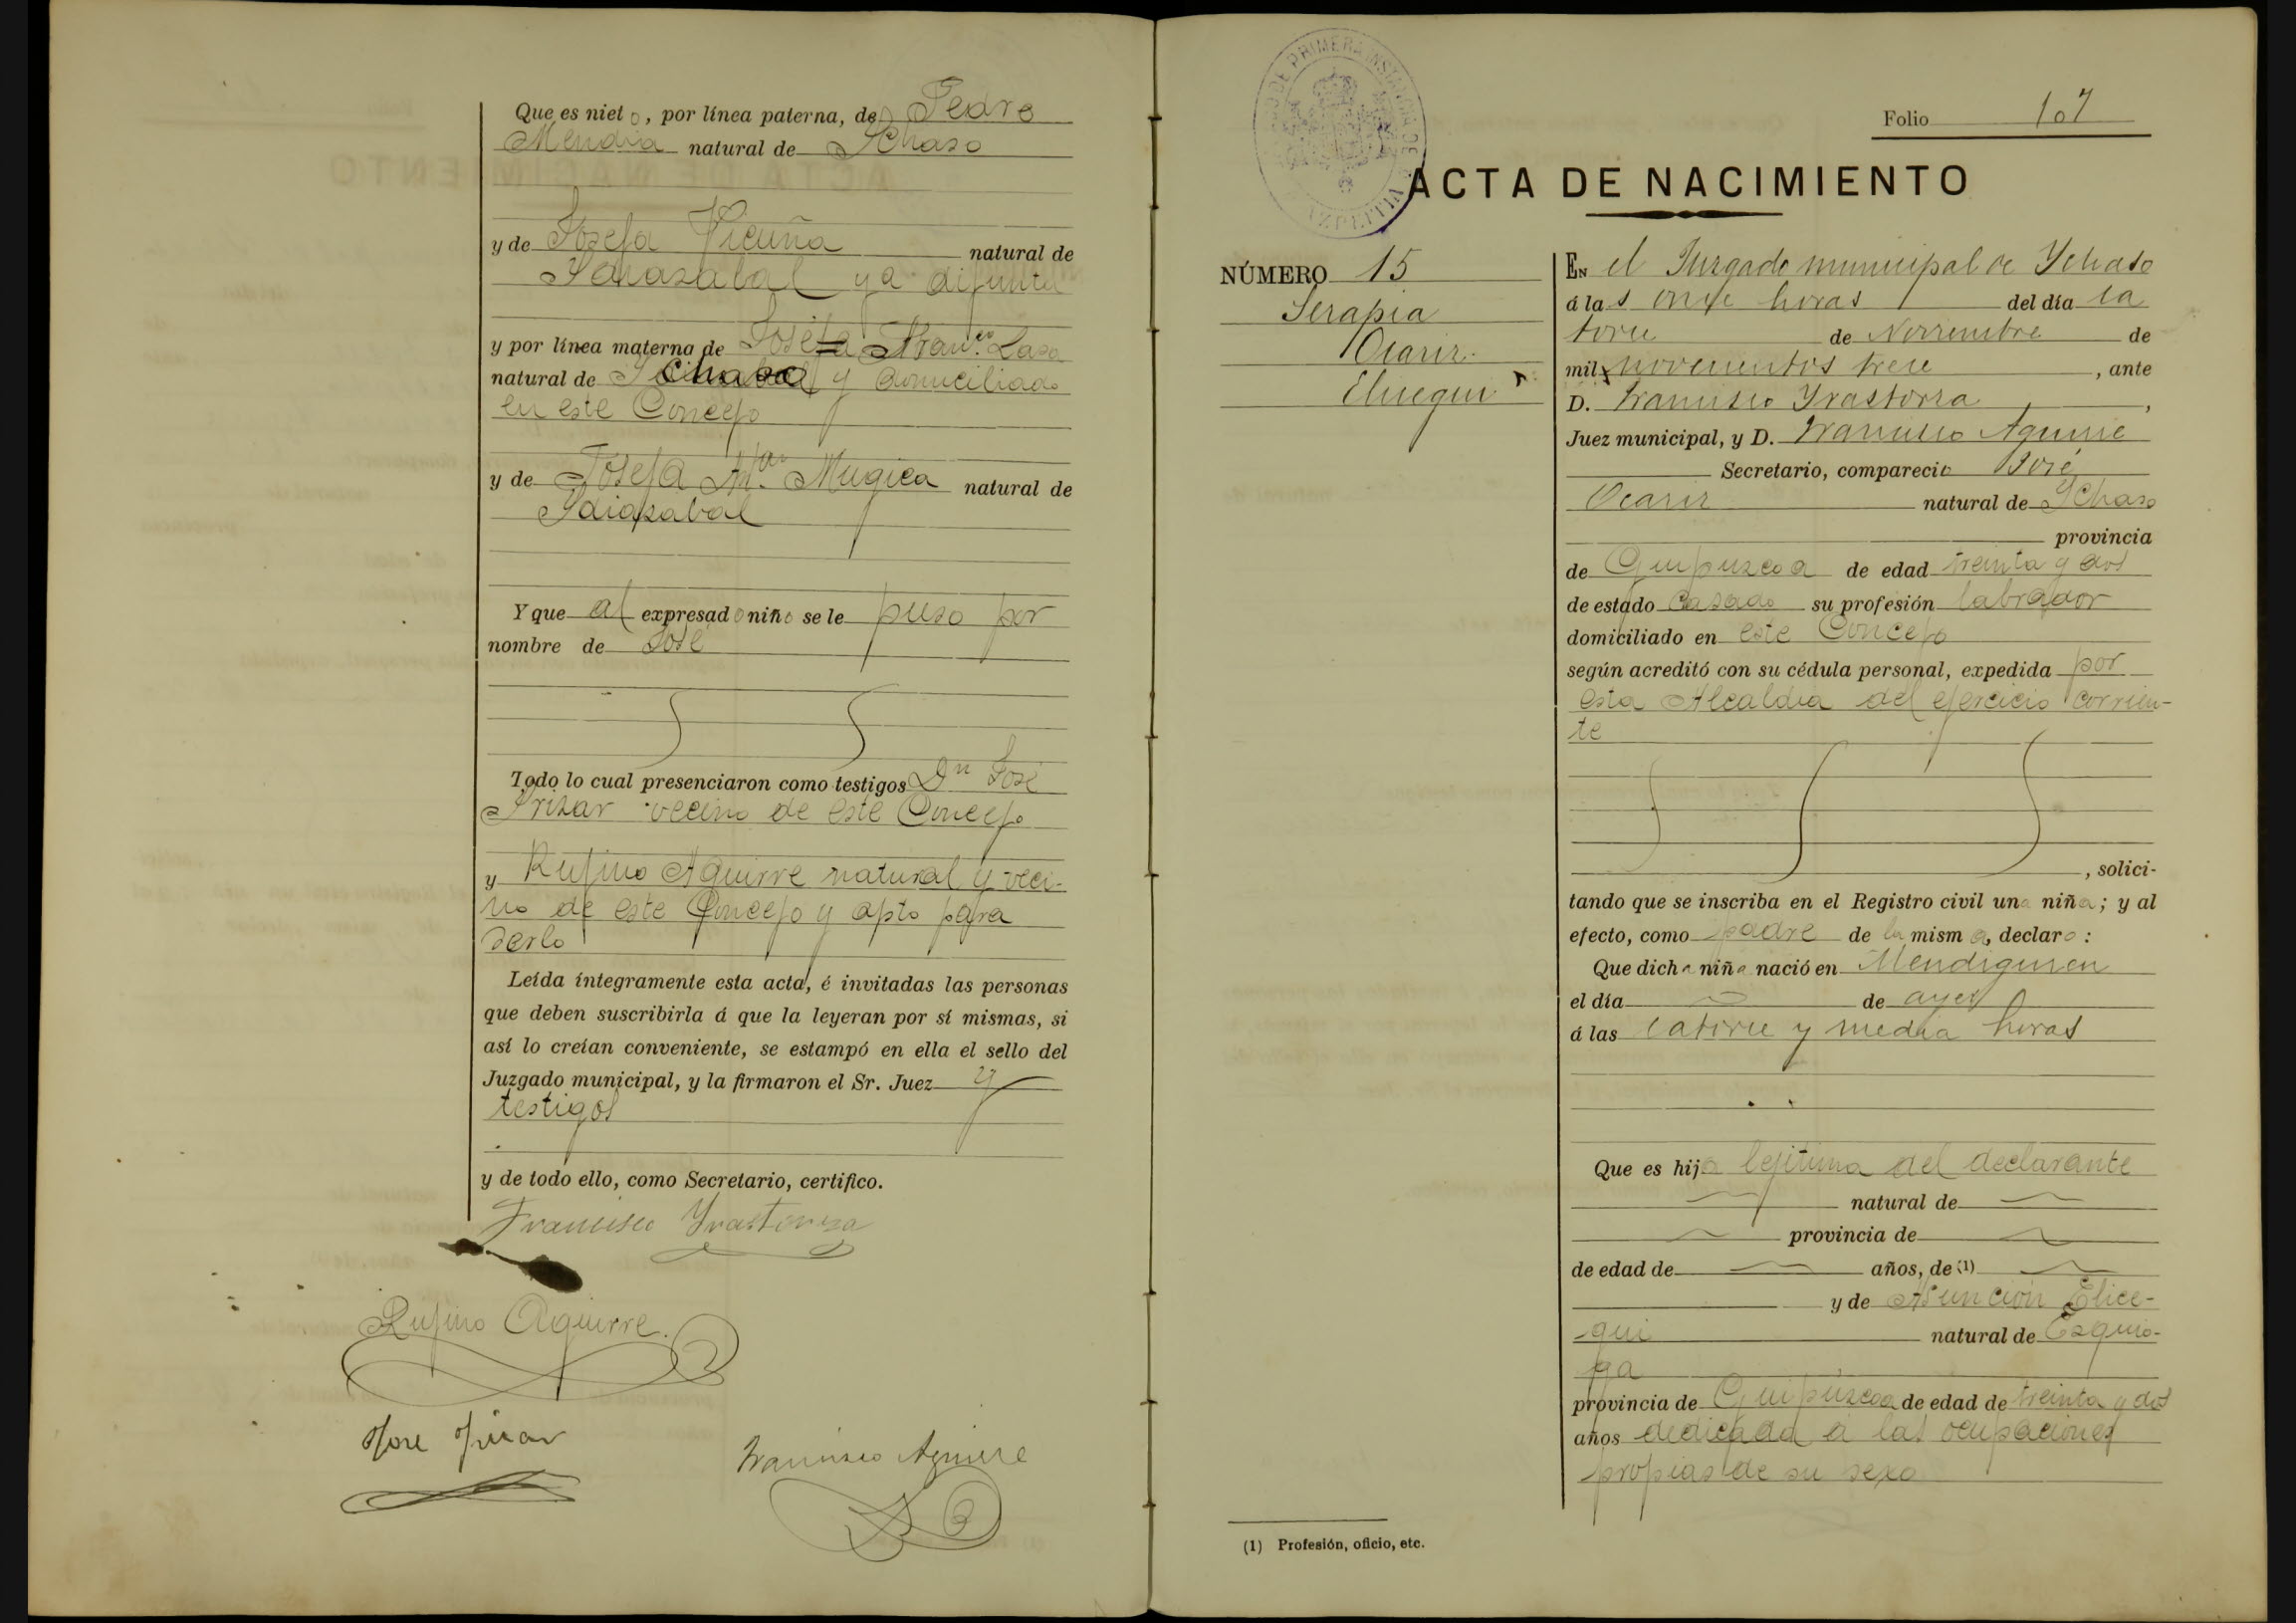 Que es nieto, por línea paterna, de Pedro
Mendia natural de Ichaso
y de Josefa Vicuña natural de
ya difunta
y por línea materna de José Franco Lasa
natural de Ichaso y domiciliado
en este Concejo
y de Josefa Ma. Mugica natural de
Idiazabal
Y que al expresado niño se le puso por
nombre de José
Todo lo cual presenciaron como testigos Dn José
Irizar vecino de este Concejo
y Rufino Aguirre natural y veci-
no de este Concejo y apto para
serlo
Leída íntegramente esta acta, é invitadas las personas
que deben suscribirla á que la leyeran por sí mismas, si
así lo creían conveniente, se estampó en ella el sello del
Juzgado municipal, y la firmaron el Sr. Juez y
testigos
y de todo ello, como Secretario, certifico.
Francisco Yrastorza
Rufino Aguirre.
José Irizar
Francisco Aguirre
Folio 107
ACTA DE NACIMIENTO
NÚMERO 15
Serapia
Ocariz
Elicegui
En el Juzgado municipal de Ychaso
á las once horas del día ca
torce de Noviembre de
mil novecientos trece, ante
D. Francisco Yrastorza,
Juez municipal, y D. Francisco Aguirre
Secretario, compareció José
Ocariz natural de Ichaso
provincia
de Guipuzcoa de edad treinta y dos
de estado casado su profesión labrador
domiciliado en este Concejo
según acreditó con su cédula personal, expedida por
esta Alcaldia del ejercicio corrien-
te
, solici-
tando que se inscriba en el Registro civil una niña; y al
efecto, como padre de la misma, declaro:
Que dicha niña nació en Mendiguren
el día de ayer
á las catorce y media horas
Que es hija lejitima del declarante
natural de
provincia de
de edad de años, de (1)
y de Asunción Elice-
gui natural de Ezquio-
ga
provincia de Guipúzcoa de edad de treinta y dos
años dedicada a las ocupaciones
propias de su sexo
(1) Profesión, oficio, etc.